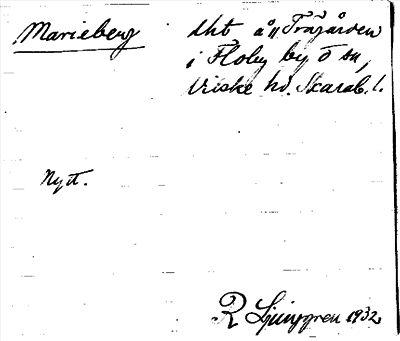 Marieberg
Uht å "Trägården
i Floby by o sn,
Vilske hd. Skarab. l.
Nytt.
R Ljunggren 1932